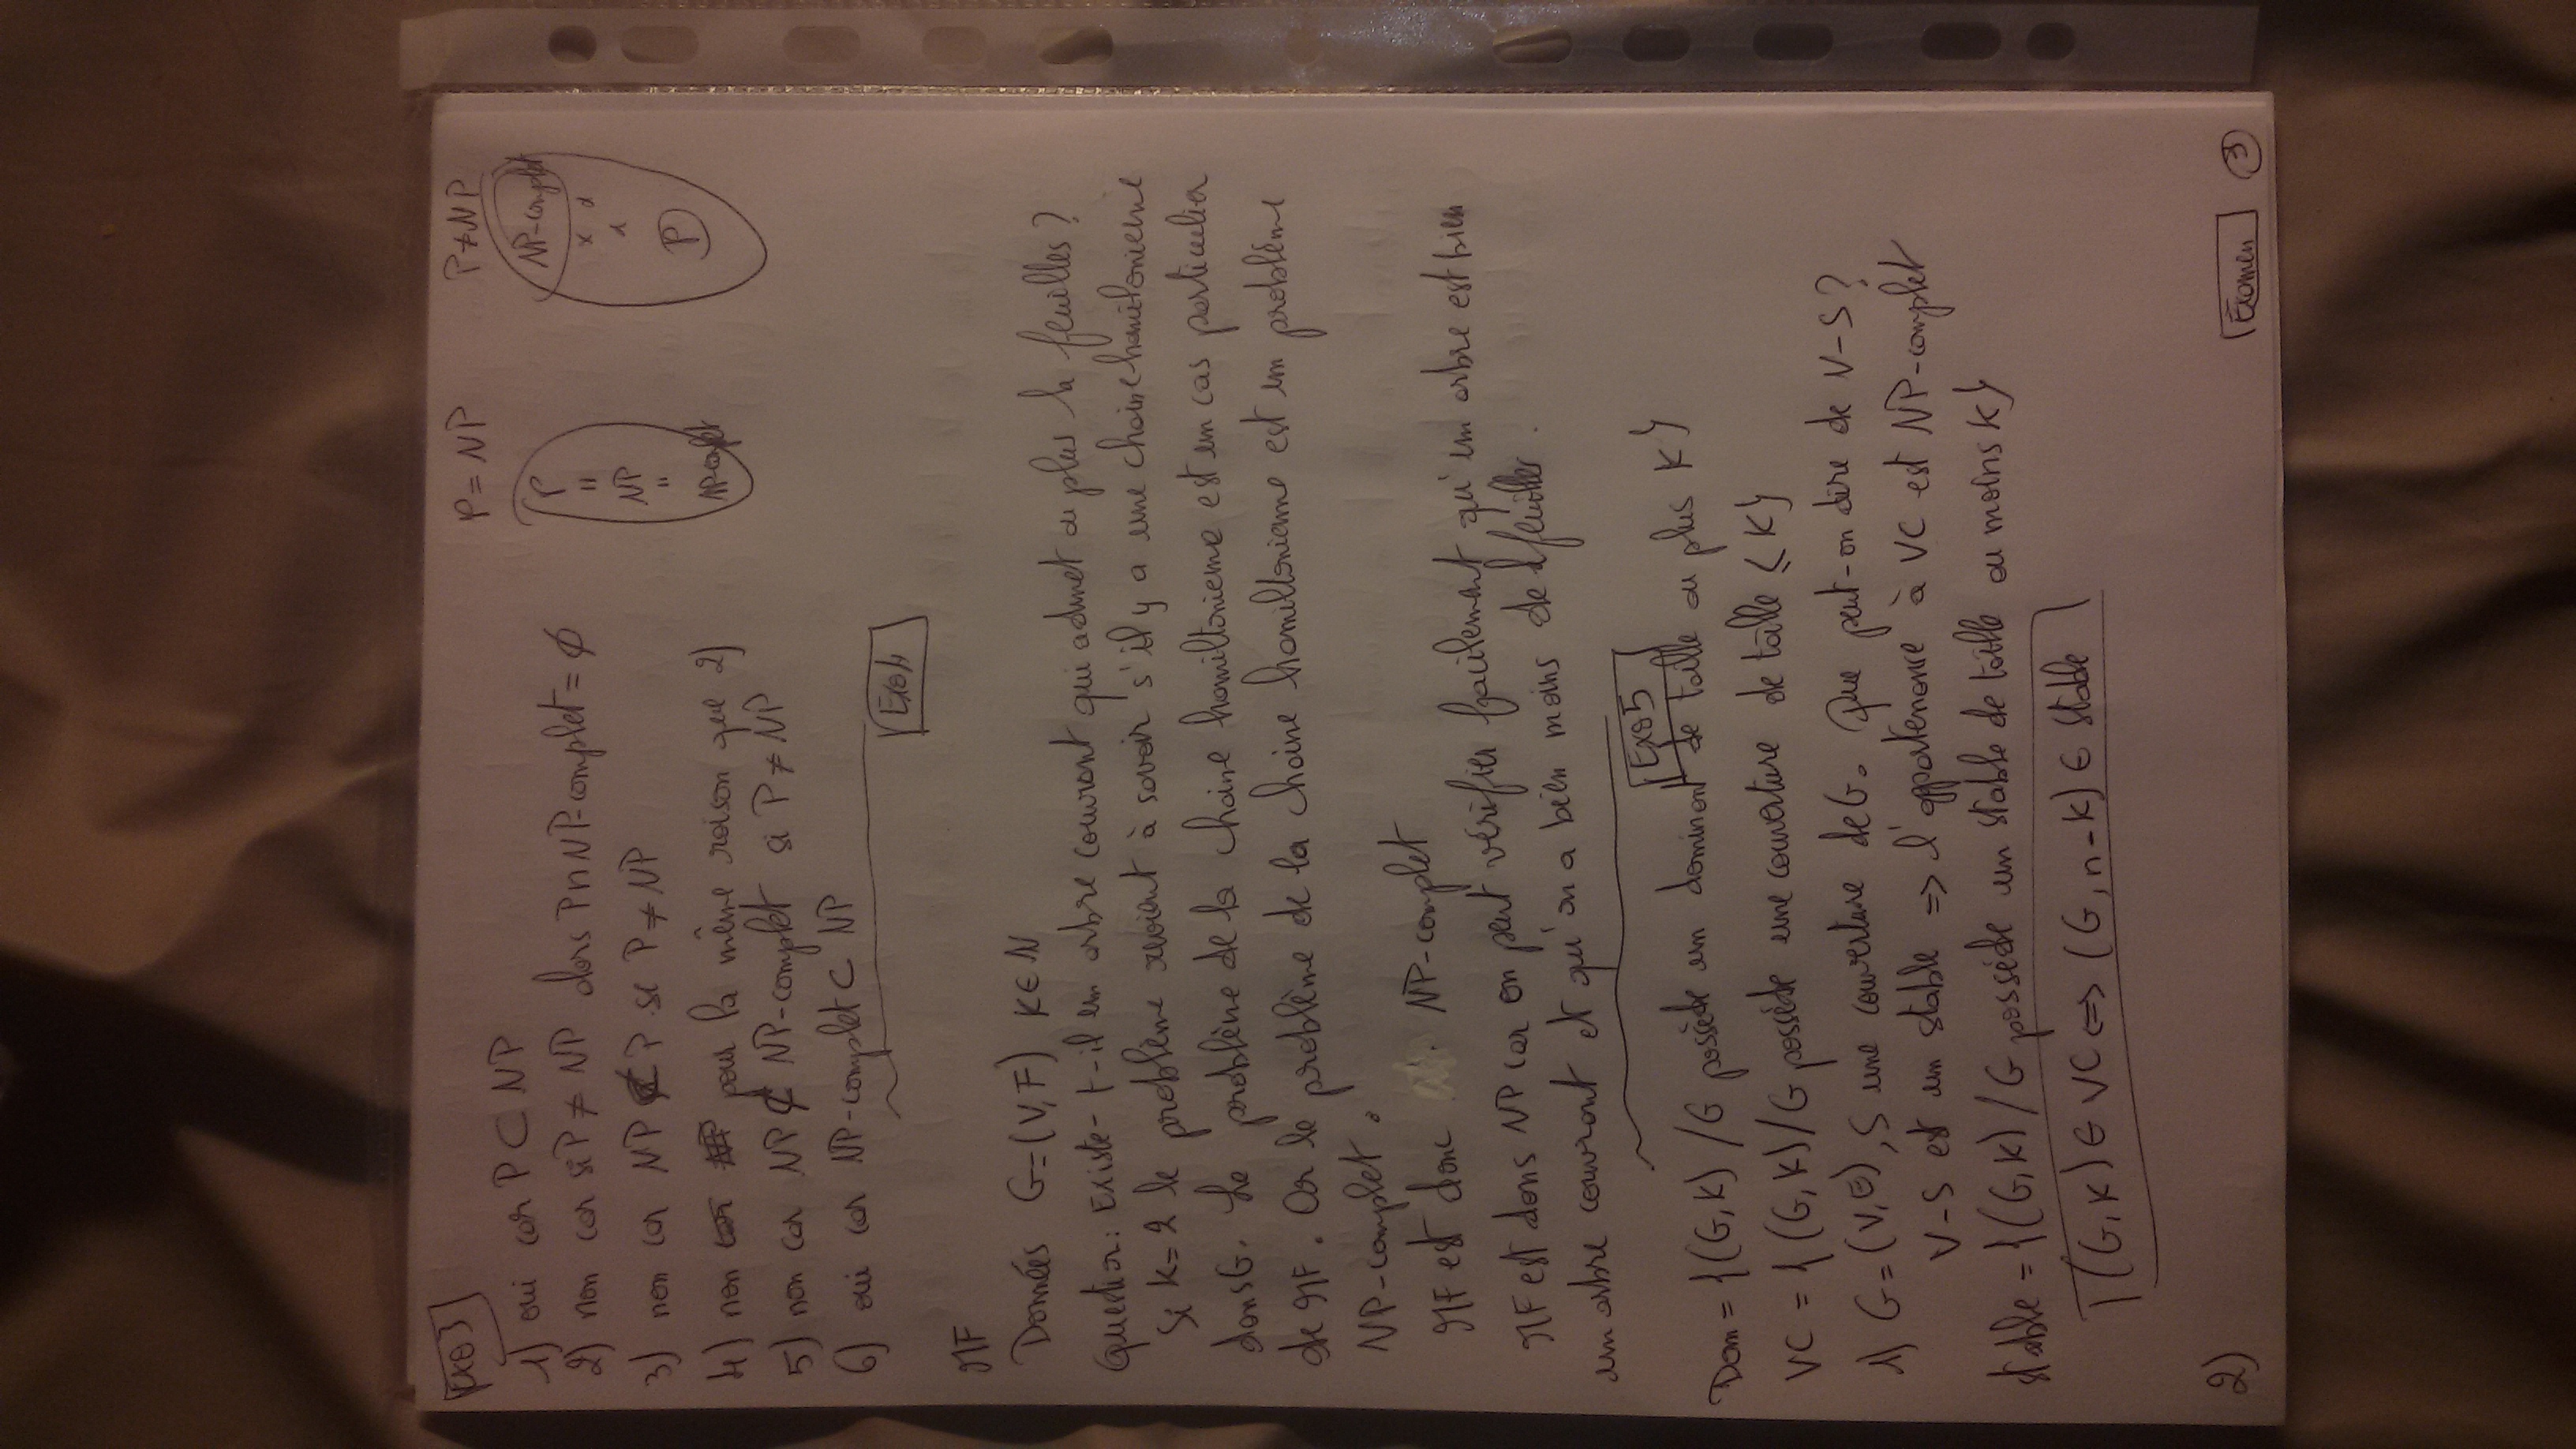 Exo 3
1) oui car P ⊂ NP
2) non car si P ≠ NP alors P ∩ NP-complet = ∅
3) non car NP ⊄ P si P ≠ NP
4) non pour la même raison que 2)
5) non car NP ⊄ NP-complet si P ≠ NP
6) oui car NP-complet ⊂ NP
P = NP
P
"
NP
"
NP-complet
P ≠ NP
NP-complet
x x
x
P
Exo 4
MF
Données G=(V,F) K ∈ N
Question: Existe-t-il un arbre couvrant qui admet au plus k feuilles?
Si K=2 le problème revient à savoir s'il y a une chaine hamiltonienne
dans G. Le problème de la chaine hamiltonienne est un cas particulier
de MF. Or le problème de la chaine hamiltonienne est un problème
NP-complet.
MF est donc NP-complet
MF est dans NP car on peut vérifier facilement qu'un arbre est bien
un arbre couvrant et qu'on a bien moins de feuilles.
Exo 5
Dom = {(G,K) / G possède un dominant de taille au plus K}
VC = {(G,K) / G possède une couverture de taille ≤ K}
1) G=(V,E), S une couverture de G. Que peut-on dire de V-S?
V-S est un stable => l'appartenance à VC est NP-complet
Stable = {(G,K) / G possède un stable de taille au moins K}
(G,K) ∈ VC <=> (G,n-K) ∈ Stable
2)
Examen 3